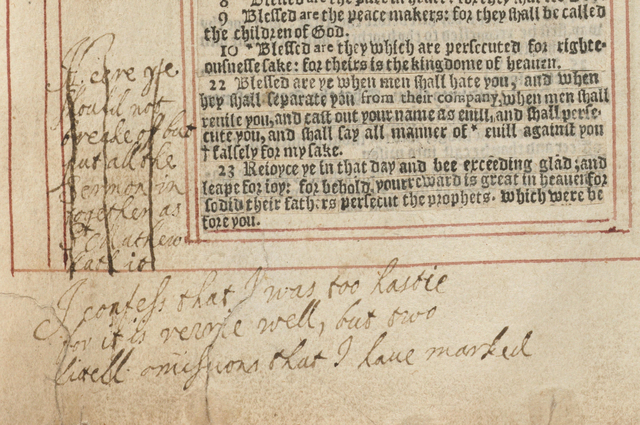 9 Blessed are the peace makers: for they shall be called
the children of God.
10 * Blessed are they which are persecuted for righte-
ousnesse sake: for theirs is the kingdome of heauen.
22 Blessed are ye when men shall hate you, and when
hey shall separate you from their company, when men shall
reuile you, and cast out your name as euill, and shall perse-
cute you, and shall say all manner of * euill against you
† falsely for my sake.
23 Reioyce ye in that day and bee exceeding glad; and
leape for ioy: for behold your reward is great in heauen for
so did their fath rs persecut the prophets. which were be
fore you.
Heere yee
should not
breake of but
put all the
Sermon in
together as
St Mathew
hath it
I confess that I was too hastie
for it is verrie well, but two
litell omissions that I haue marked